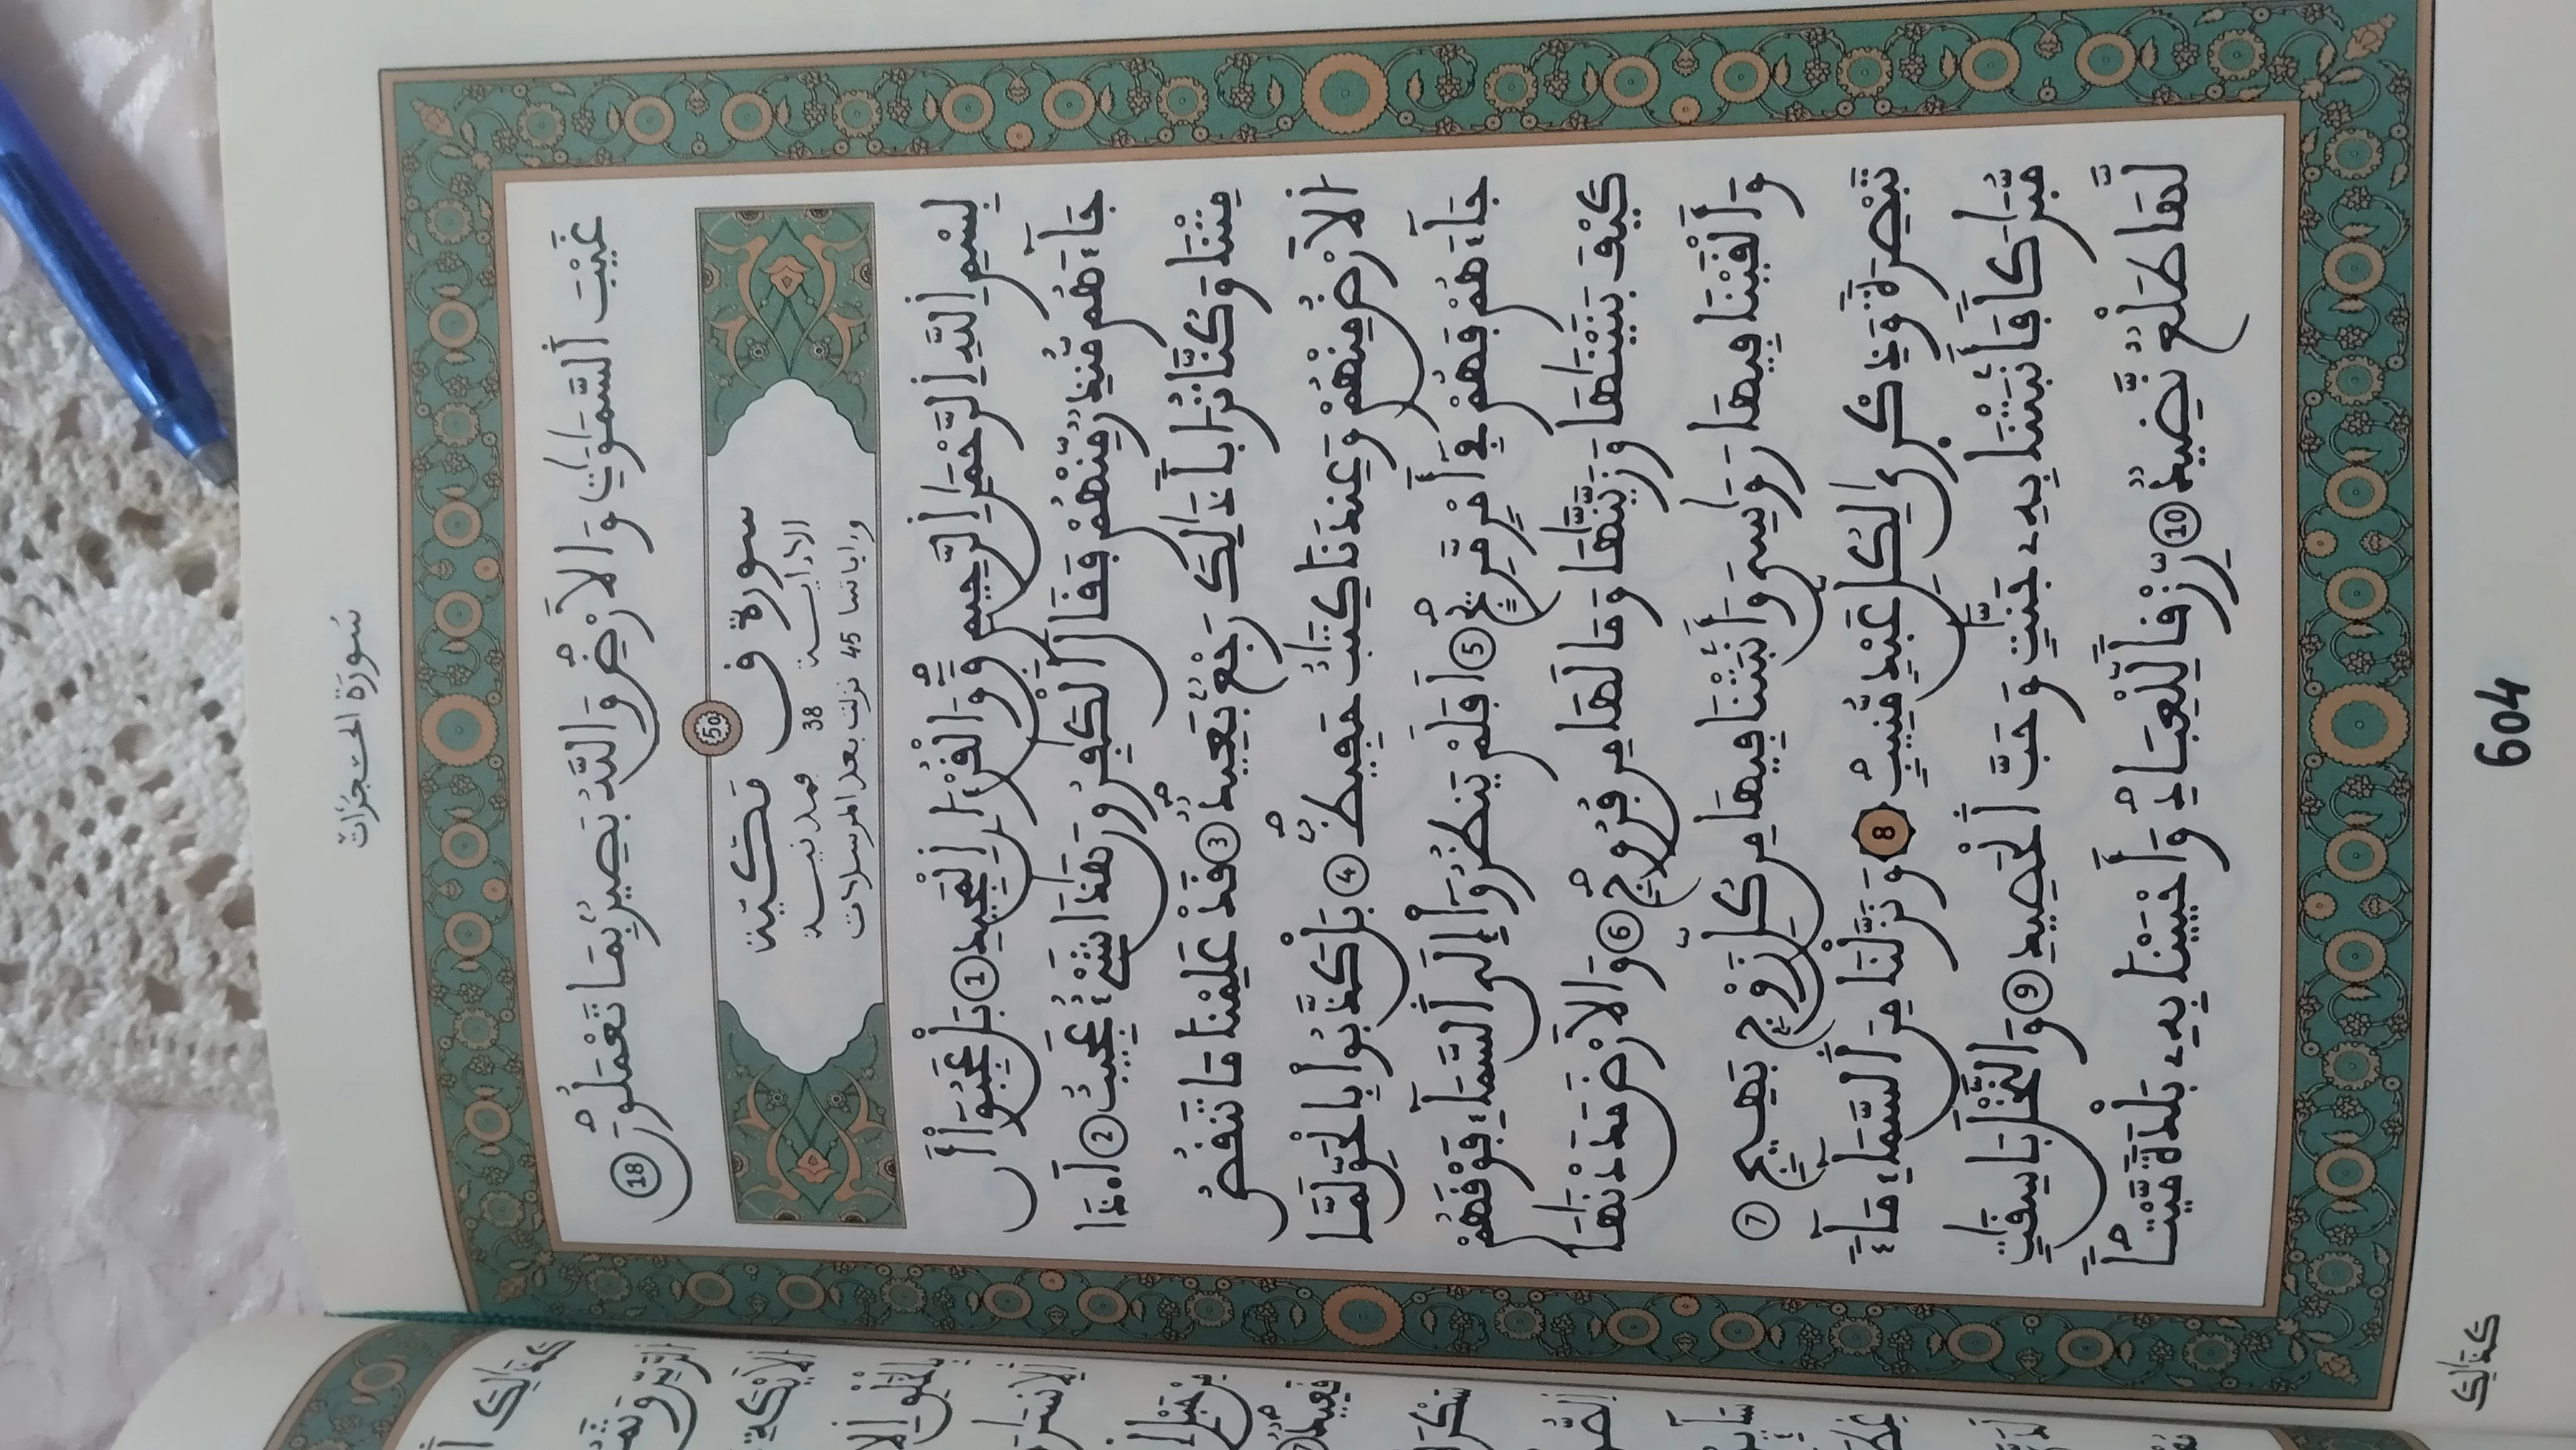 سُورَةُ الحُجُرَاتِ
غَيْبَ اَ۬لسَّمَٰوَٰتِ وَالَارْضِۖ وَاللَّهُ بَصِيرُۢ بِمَا تَعْمَلُونَۖ 18
50
سورة ق مكية
الا ءاية 38 فمدنية
وءاياتها 45 نزلت بعد المرسلات
بِسْمِ اِ۬للَّهِ اِ۬لرَّحْمَٰنِ اِ۬لرَّحِيمِ قَٓۖ وَالْقُرْءَانِ اِ۬لْمَجِيدِ 1 بَلْ عَجِبُوٓاْ أَن
جَآءَهُم مُّنذِرٞ مِّنْهُمْ فَقَالَ اَ۬لْكَٰفِرُونَ هَٰذَا شَےْءٌ عَجِيبٌ 2 اَ۟ذَا
مِتْنَا وَكُنَّا تُرَاباٗ ذَٰلِكَ رَجْعُۢ بَعِيدٞۖ 3 قَدْ عَلِمْنَا مَا تَنقُصُ
اُ۬لَارْضُ مِنْهُمْ وَعِندَنَا كِتَٰبٌ حَفِيظُۢۖ 4 بَلْ كَذَّبُواْ بِالْحَقِّ لَمَّا
جَآءَهُمْ فَهُمْ فِےٓ أَمْرٖ مَّرِيجٍۖ 5 اَفَلَمْ يَنظُرُوٓاْ إِلَى اَ۬لسَّمَآءِ فَوْقَهُمْ
كَيْفَ بَنَيْنَٰهَا وَزَيَّنَّٰهَا وَمَا لَهَا مِن فُرُوجٖۖ 6 وَالَارْضَ مَدَدْنَٰهَا
وَأَلْقَيْنَا فِيهَا رَوَٰسِيَ وَأَنۢبَتْنَا فِيهَا مِن كُلِّ زَوْجِۢ بَهِيجٖ 7
تَبْصِرَةٗ وَذِكْر۪يٰ لِكُلِّ عَبْدٖ مُّنِيبٖۖ 8 وَنَزَّلْنَا مِنَ اَ۬لسَّمَآءِ مَآءٗ
مُّبَٰرَكاٗ فَأَنۢبَتْنَا بِهِۦ جَنَّٰتٖ وَحَبَّ اَ۬لْحَصِيدِ 9 وَالنَّخْلَ بَاسِقَٰتٖ
لَّهَا طَلْعٞ نَّضِيدٞ 10 رِّزْقاٗ لِّلْعِبَادِۖ وَأَحْيَيْنَا بِهِۦ بَلْدَةٗ مَّيْتاٗۖ
كَذَٰلِكَ
604